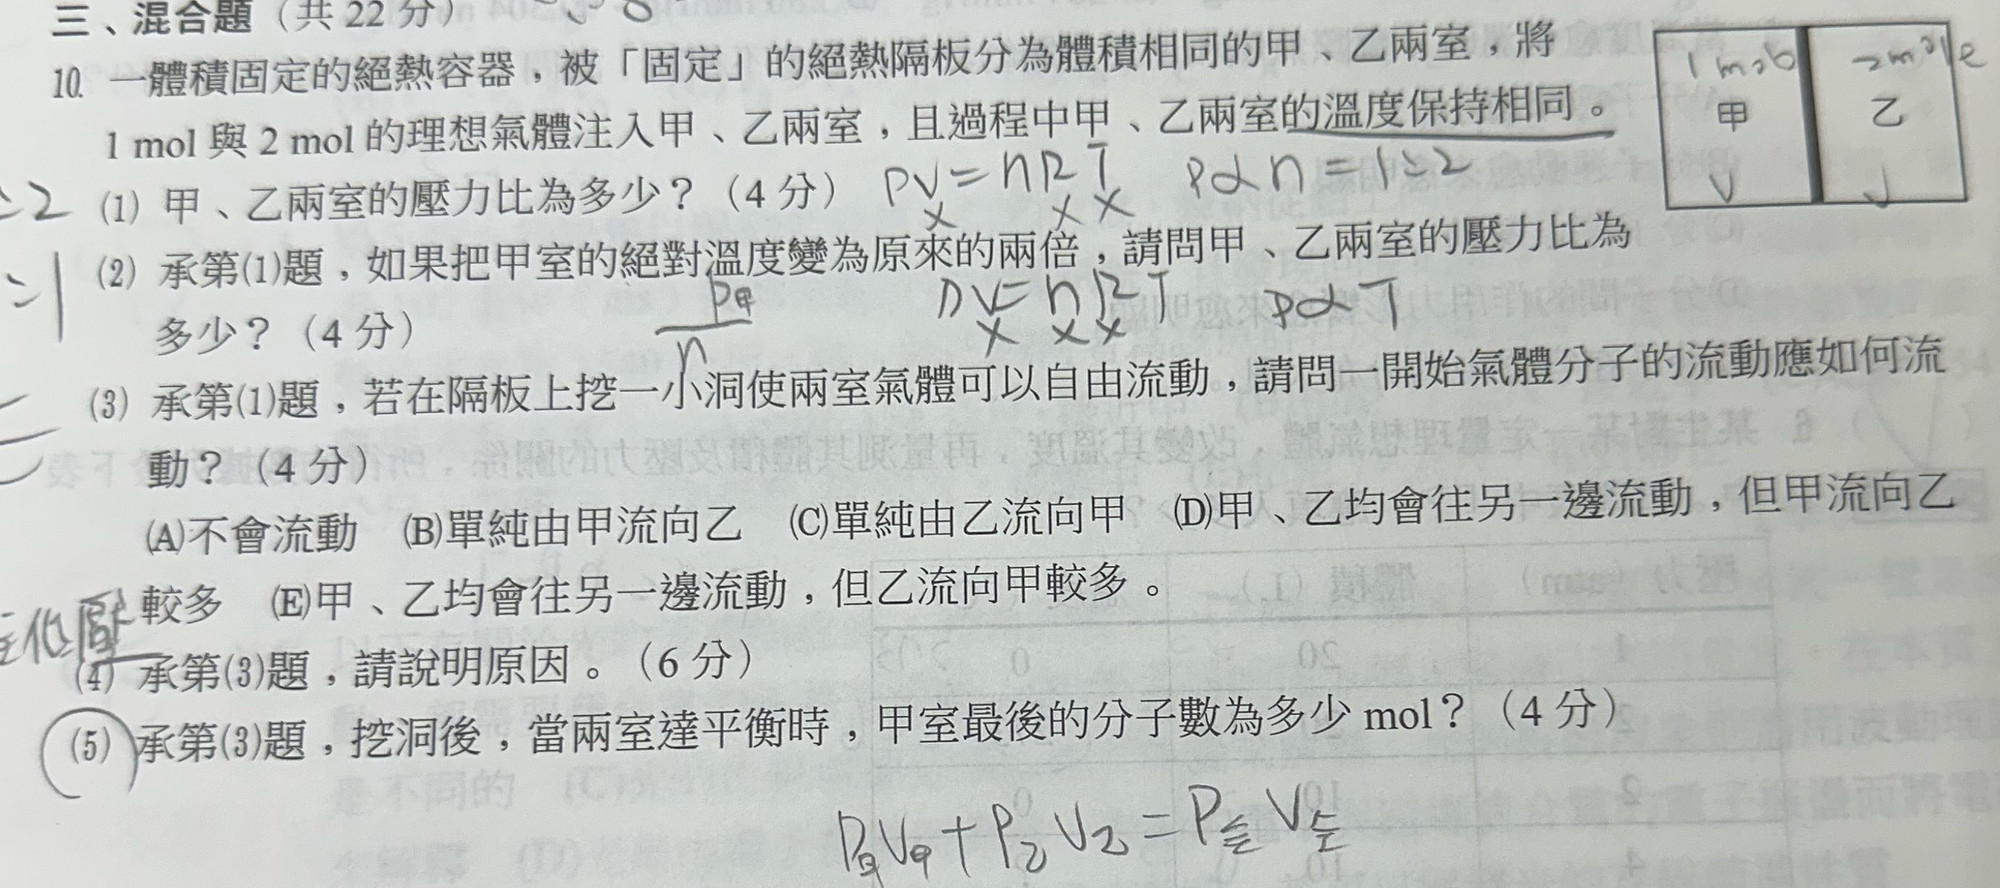 三、混合題（共 22 分）
10. 一體積固定的絕熱容器，被「固定」的絕熱隔板分為體積相同的甲、乙兩室，將
1 mol 與 2 mol 的理想氣體注入甲、乙兩室，且過程中甲、乙兩室的溫度保持相同。
甲
乙
2mole
V
PV=nRT
P∝n=1:2
:2
(1) 甲、乙兩室的壓力比為多少？（4 分）
(2) 承第(1)題，如果把甲室的絕對溫度變為原來的兩倍，請問甲、乙兩室的壓力比為
:1
多少？（4 分）
P甲
n
PV=nRT
P∝T
(3) 承第(1)題，若在隔板上挖一小洞使兩室氣體可以自由流動，請問一開始氣體分子的流動應如何流
動？（4 分）
(A)不會流動　(B)單純由甲流向乙　(C)單純由乙流向甲　(D)甲、乙均會往另一邊流動，但甲流向乙
較多　(E)甲、乙均會往另一邊流動，但乙流向甲較多。
低壓
(4) 承第(3)題，請說明原因。（6 分）
(5) 承第(3)題，挖洞後，當兩室達平衡時，甲室最後的分子數為多少 mol？（4 分）
P甲V甲+P乙V乙=P全V全